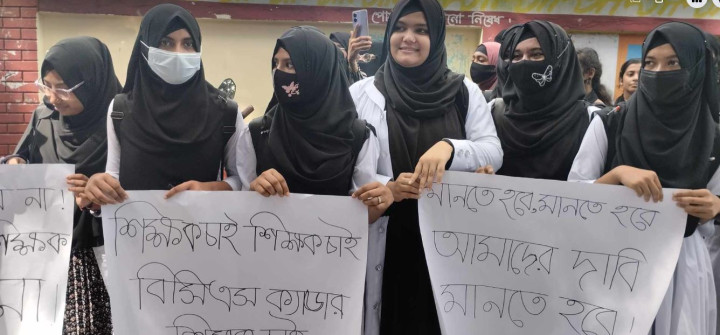 পো নো নিষেধ
না!
শিক্ষক
না।
শিক্ষক চাই শিক্ষক চাই
বিসিএস ক্যাডার
মানতে হবে, মানতে হবে
আমাদের দাবি
মানতে হবে।